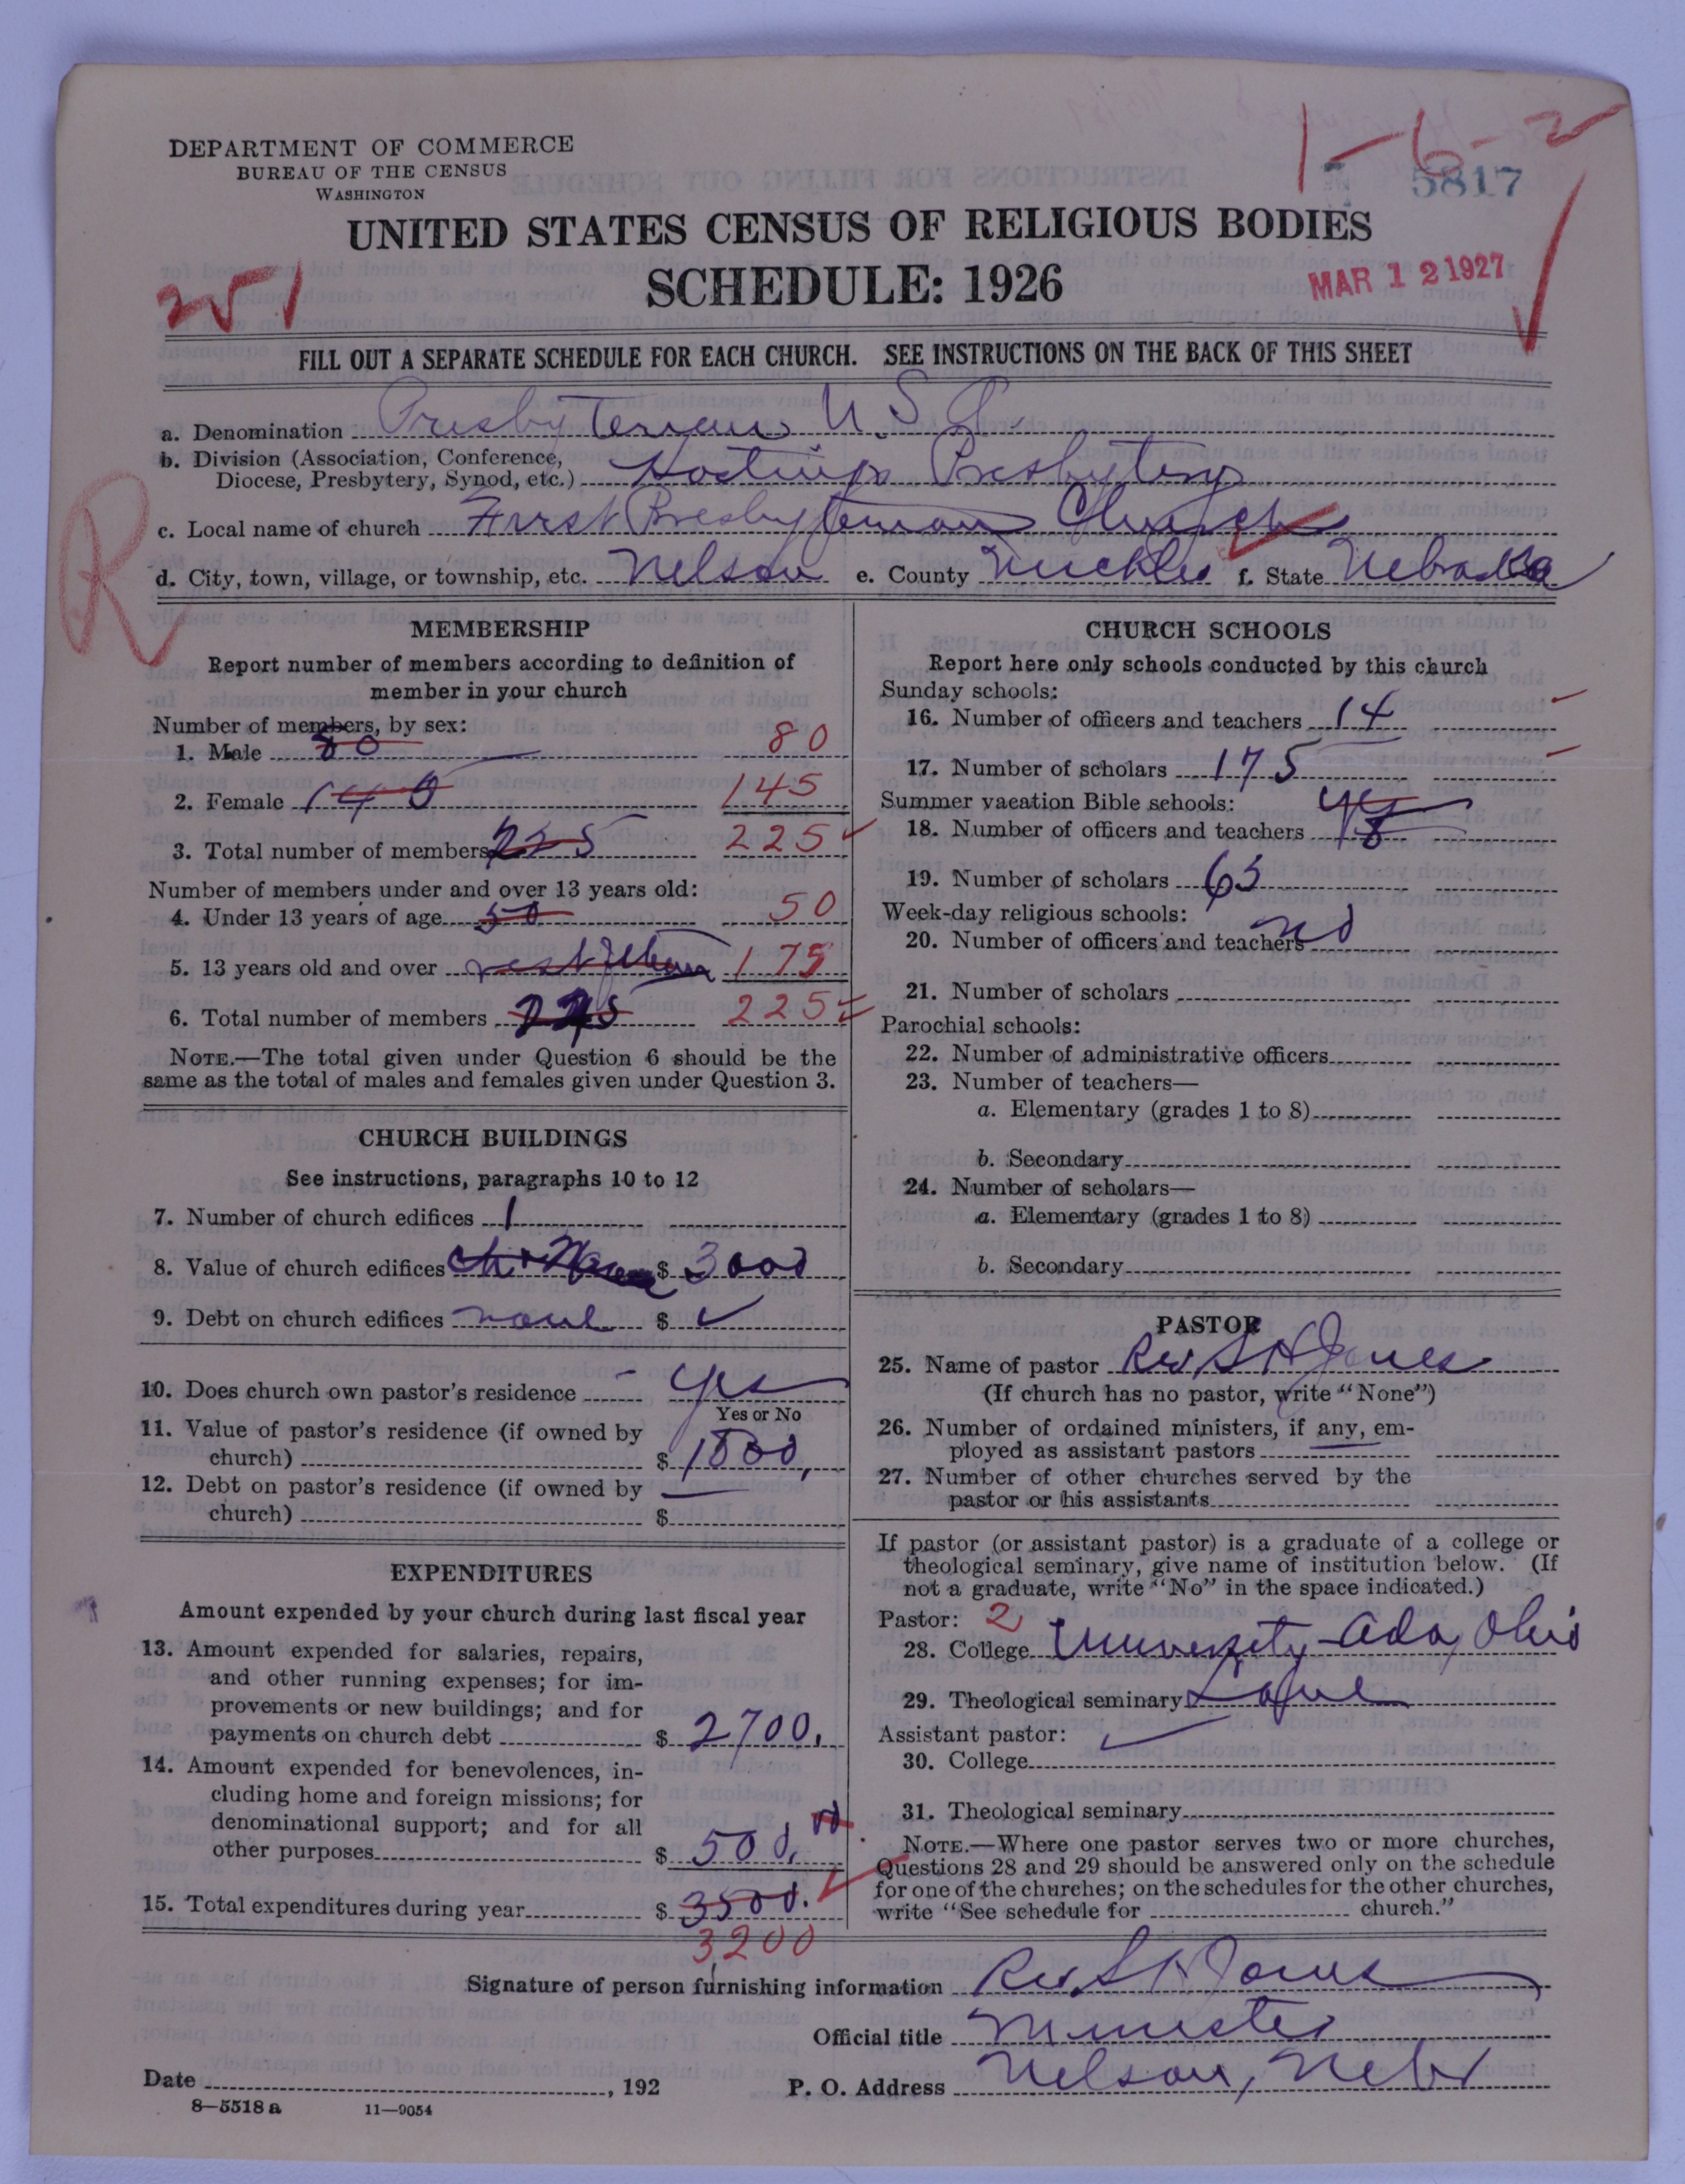 1-6-2
5817
DEPARTMENT OF COMMERCE
BUREAU OF THE CENSUS
WASHINGTON
UNITED STATES CENSUS OF RELIGIOUS BODIES
SCHEDULE: 1926
MAR 12 1927
251
FILL OUT A SEPARATE SCHEDULE FOR EACH CHURCH. SEE INSTRUCTIONS ON THE BACK OF THIS SHEET
a. Denomination Presbyterian U.S.
b. Division (Association, Conference,
Diocese, Presbytery, Synod, etc.) Hastings Presbytery
R
c. Local name of church First Presbyterian Church
d. City, town, village, or township, etc. Nelson e. County Nuckles f. State Nebraska
MEMBERSHIP
Report number of members according to definition of
member in your church
Number of members, by sex:
1. Male 80 80
2. Female 140 145
3. Total number of members 225 225
Number of members under and over 13 years old:
4. Under 13 years of age 50 50
5. 13 years old and over 175
6. Total number of members 225
NOTE.—The total given under Question 6 should be the
same as the total of males and females given under Question 3.
CHURCH BUILDINGS
See instructions, paragraphs 10 to 12
7. Number of church edifices 1
8. Value of church edifices $ 3000
9. Debt on church edifices none $
10. Does church own pastor's residence yes
Yes or No
11. Value of pastor's residence (if owned by
church) $
12. Debt on pastor's residence (if owned by
church) $
EXPENDITURES
Amount expended by your church during last fiscal year
13. Amount expended for salaries, repairs,
and other running expenses; for im-
provements or new buildings; and for
payments on church debt $ 2700.
14. Amount expended for benevolences, in-
cluding home and foreign missions; for
denominational support; and for all
other purposes $ 500.
15. Total expenditures during year $ 3500.
3200
CHURCH SCHOOLS
Report here only schools conducted by this church
Sunday schools:
16. Number of officers and teachers 14
17. Number of scholars 175
Summer vacation Bible schools: yes
18. Number of officers and teachers
19. Number of scholars 63
Week-day religious schools:
20. Number of officers and teachers no
21. Number of scholars
Parochial schools:
22. Number of administrative officers
23. Number of teachers—
a. Elementary (grades 1 to 8)
b. Secondary
24. Number of scholars—
a. Elementary (grades 1 to 8)
b. Secondary
PASTOR
25. Name of pastor Rev S H Jones
(If church has no pastor, write "None")
26. Number of ordained ministers, if any, em-
ployed as assistant pastors
27. Number of other churches served by the
pastor or his assistants
If pastor (or assistant pastor) is a graduate of a college or
theological seminary, give name of institution below. (If
not a graduate, write "No" in the space indicated.)
Pastor: 2
28. College University - Ada, Ohio
29. Theological seminary Lane
Assistant pastor:
30. College
31. Theological seminary
NOTE.—Where one pastor serves two or more churches,
Questions 28 and 29 should be answered only on the schedule
for one of the churches; on the schedules for the other churches,
write "See schedule for church."
Signature of person furnishing information Rev S H Jones
Official title Minister
Date , 192 P. O. Address Nelson, Nebr
8—5518 a 11—9054